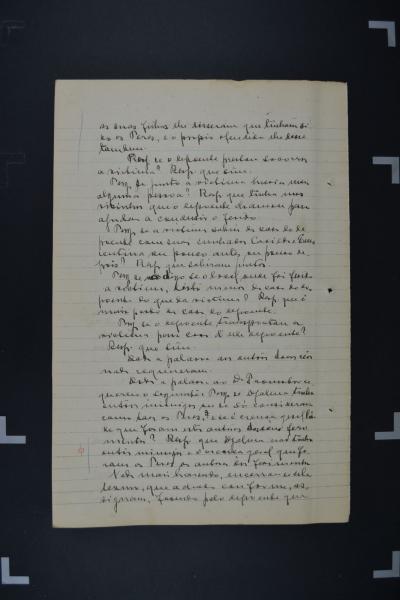 os seus filhos lhe disseram que tinham si
do os Peres, e o proprio ofendido lhe disse
tambem.
Perg. se o depoente prestou socorros
a victima? Resp. que sim.
Perg. se junto a victima havia mais
alguma pessoa? Resp. que tinha uns
visinhos que o depoente chamou para
ajudar a conduzir o ferido.
Perg. se a victima sahiu da casa do de
poente com seus cunhados
pouco antes ou pouco de
pois? Resp. que sahiram juntos.
Perg. se o local onde foi ferido
a victima, dista menos da casa do de
poente do que da victima? Resp. que é
mais perto da casa do depoente.
Perg. se o depoente transportou a
victima para casa d'elle depoente?
Resp. que sim.
Dada a palavra aos outros dois réos
nada requereram.
Dada a palavra ao Dr. Promotor
requereu o seguinte: Perg. se Djalma tinha
outros inimigos ou se só consideram
como taes os Peres, e se é crença geral
de que foram estes autores dos feri
mentos? Resp. que Djalma não tinha
outros inimigos e é crença geral que fo
ram os Peres os autores dos ferimentos.
Nada mais havendo, encerra-se este
termo, que achado conforme, as
signam, fazendo pelo depoente que